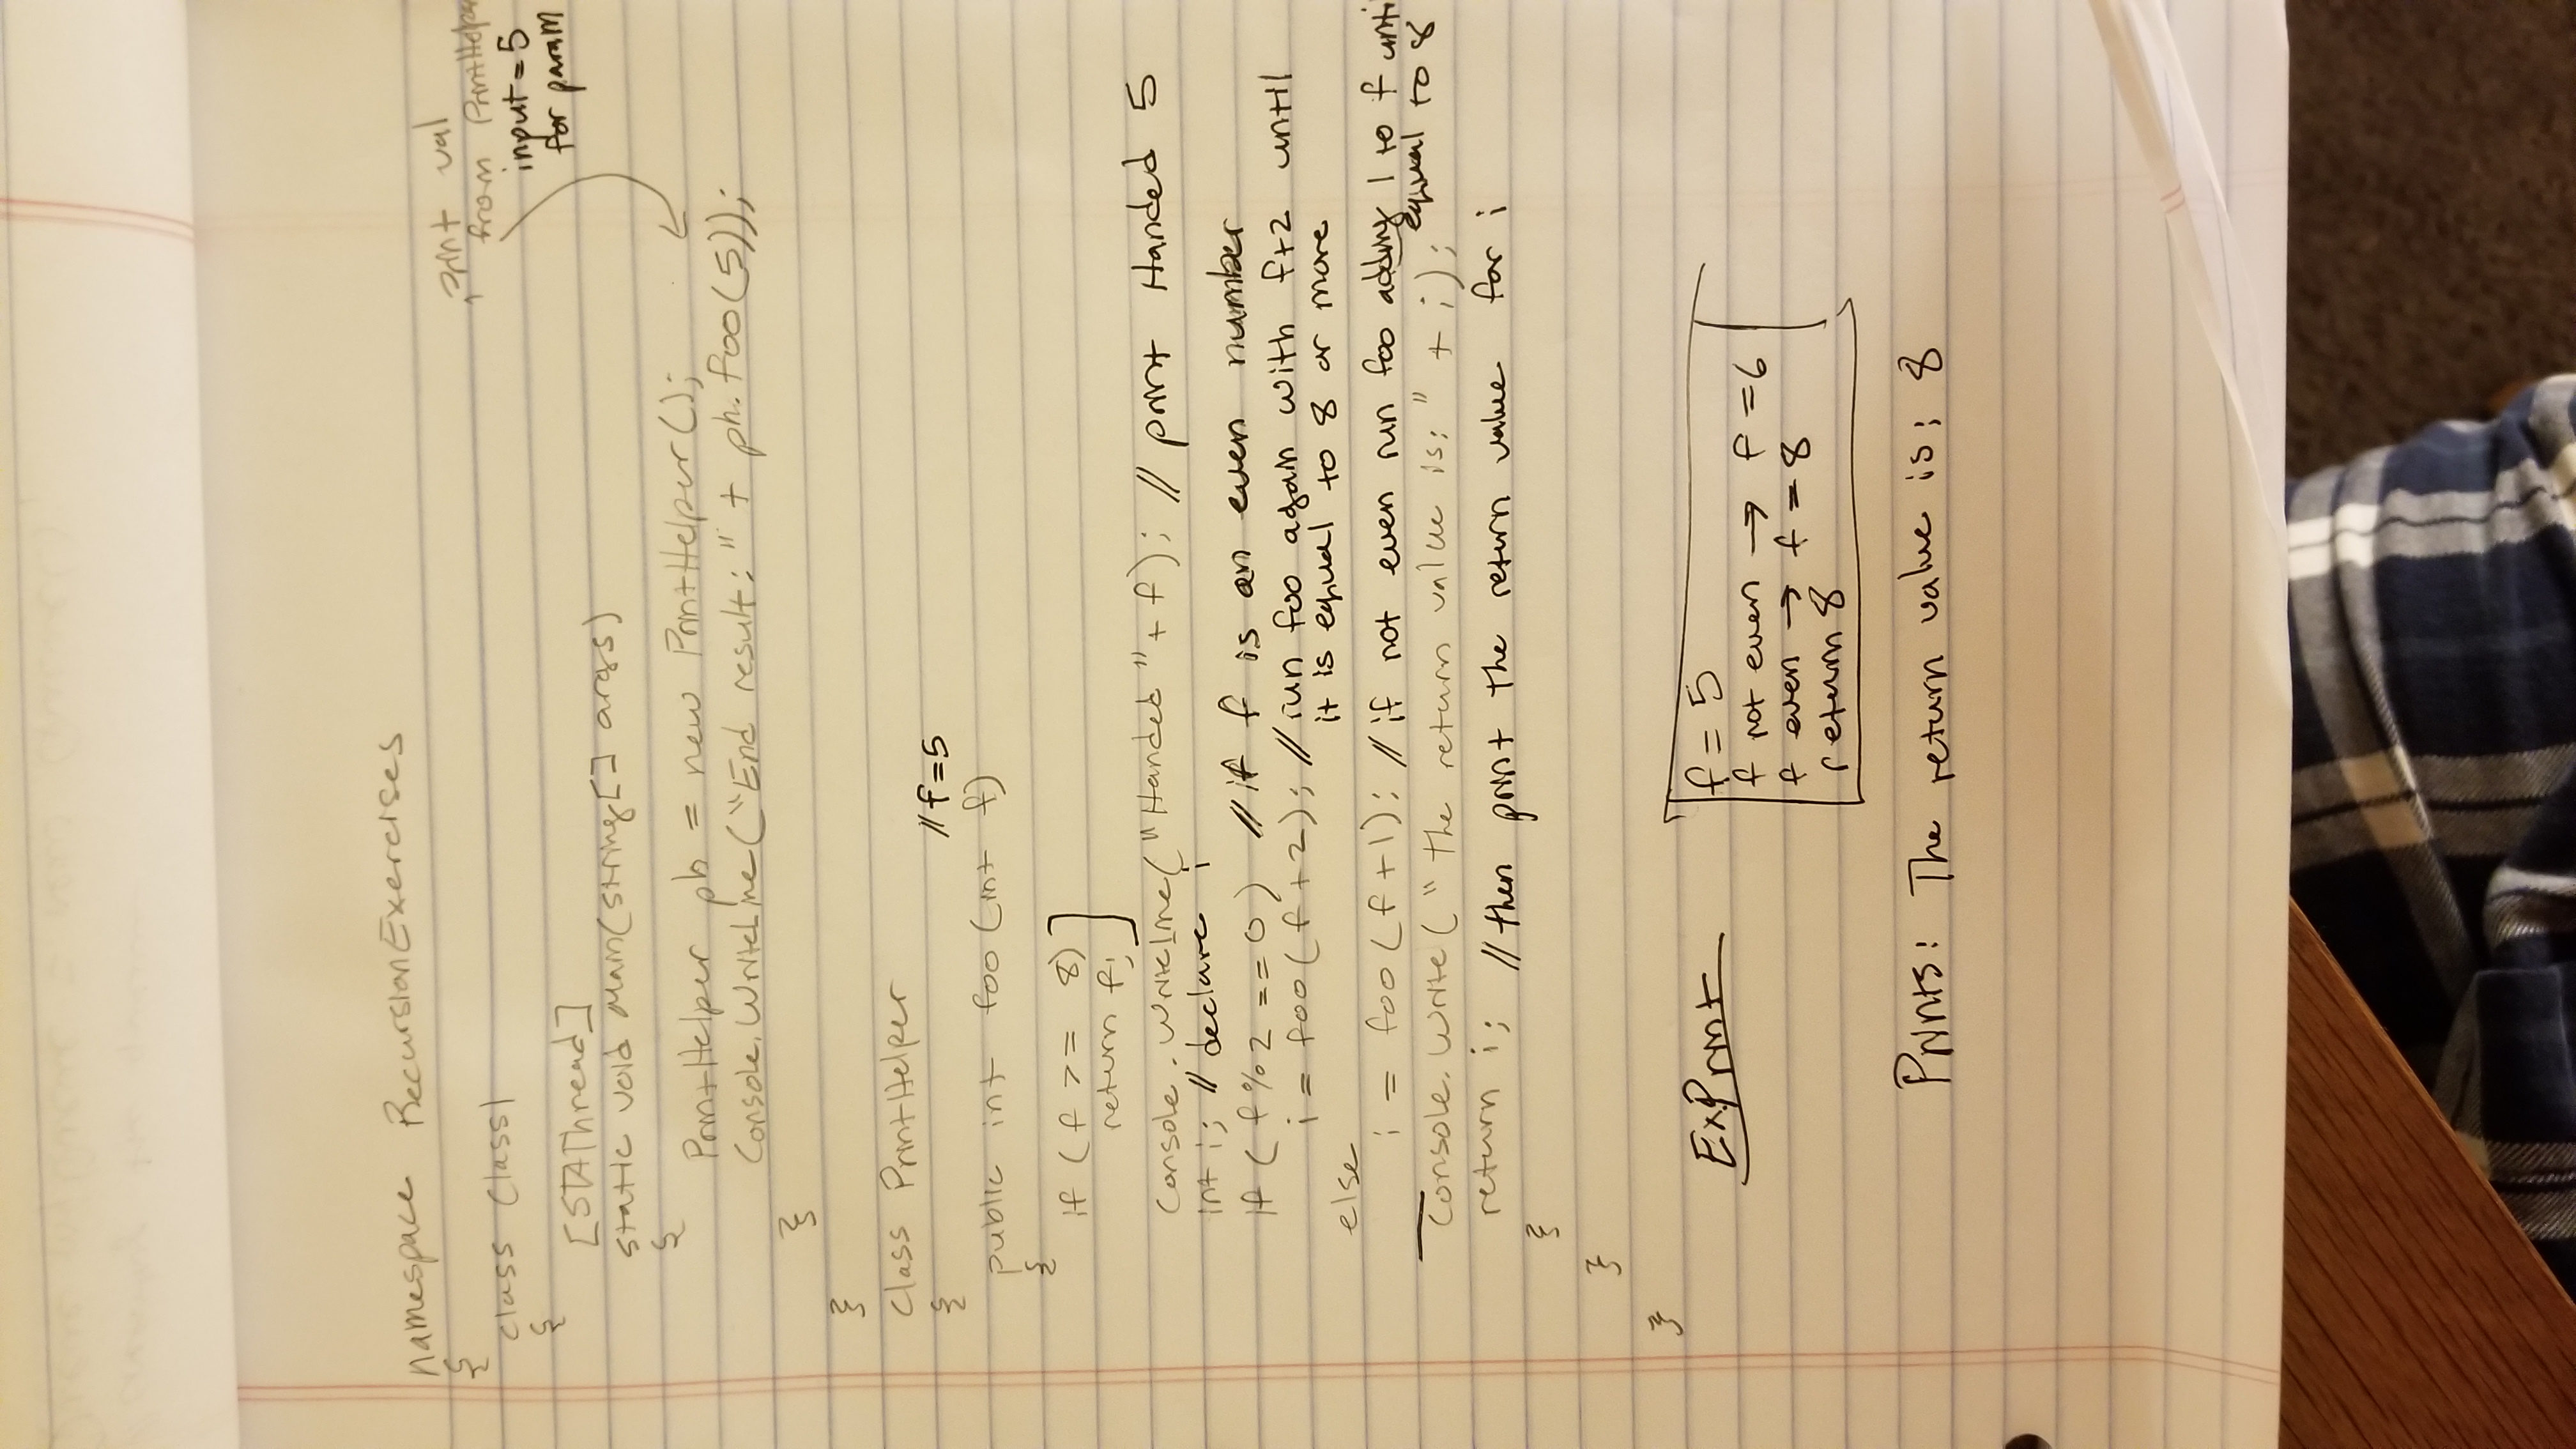 namespace RecursionExercises
{
class Class1
{
[STAThread]
static void Main(string[] args)
{
print val
from PrintHelper
input = 5
for param
PrintHelper ph = new PrintHelper();
Console.WriteLine("End result: " + ph.foo(5));
}
}
class PrintHelper
{
// f=5
public int foo (int f)
{
if (f >= 8)
return f;
Console.WriteLine("Handed " + f); // print Handed 5
int i; // declare i
if (f%2 ==0) // if f is an even number
i = foo(f+2); // run foo again with f+2 until
it is equal to 8 or more
else
i = foo(f+1); // if not even run foo adding 1 to f until
equal to 8
Console.Write("The return value is: " + i);
return i; // then print the return value for i
}
}
}
Ex.Print
f = 5
f not even → f = 6
f even → f = 8
return 8
Prints: The return value is: 8